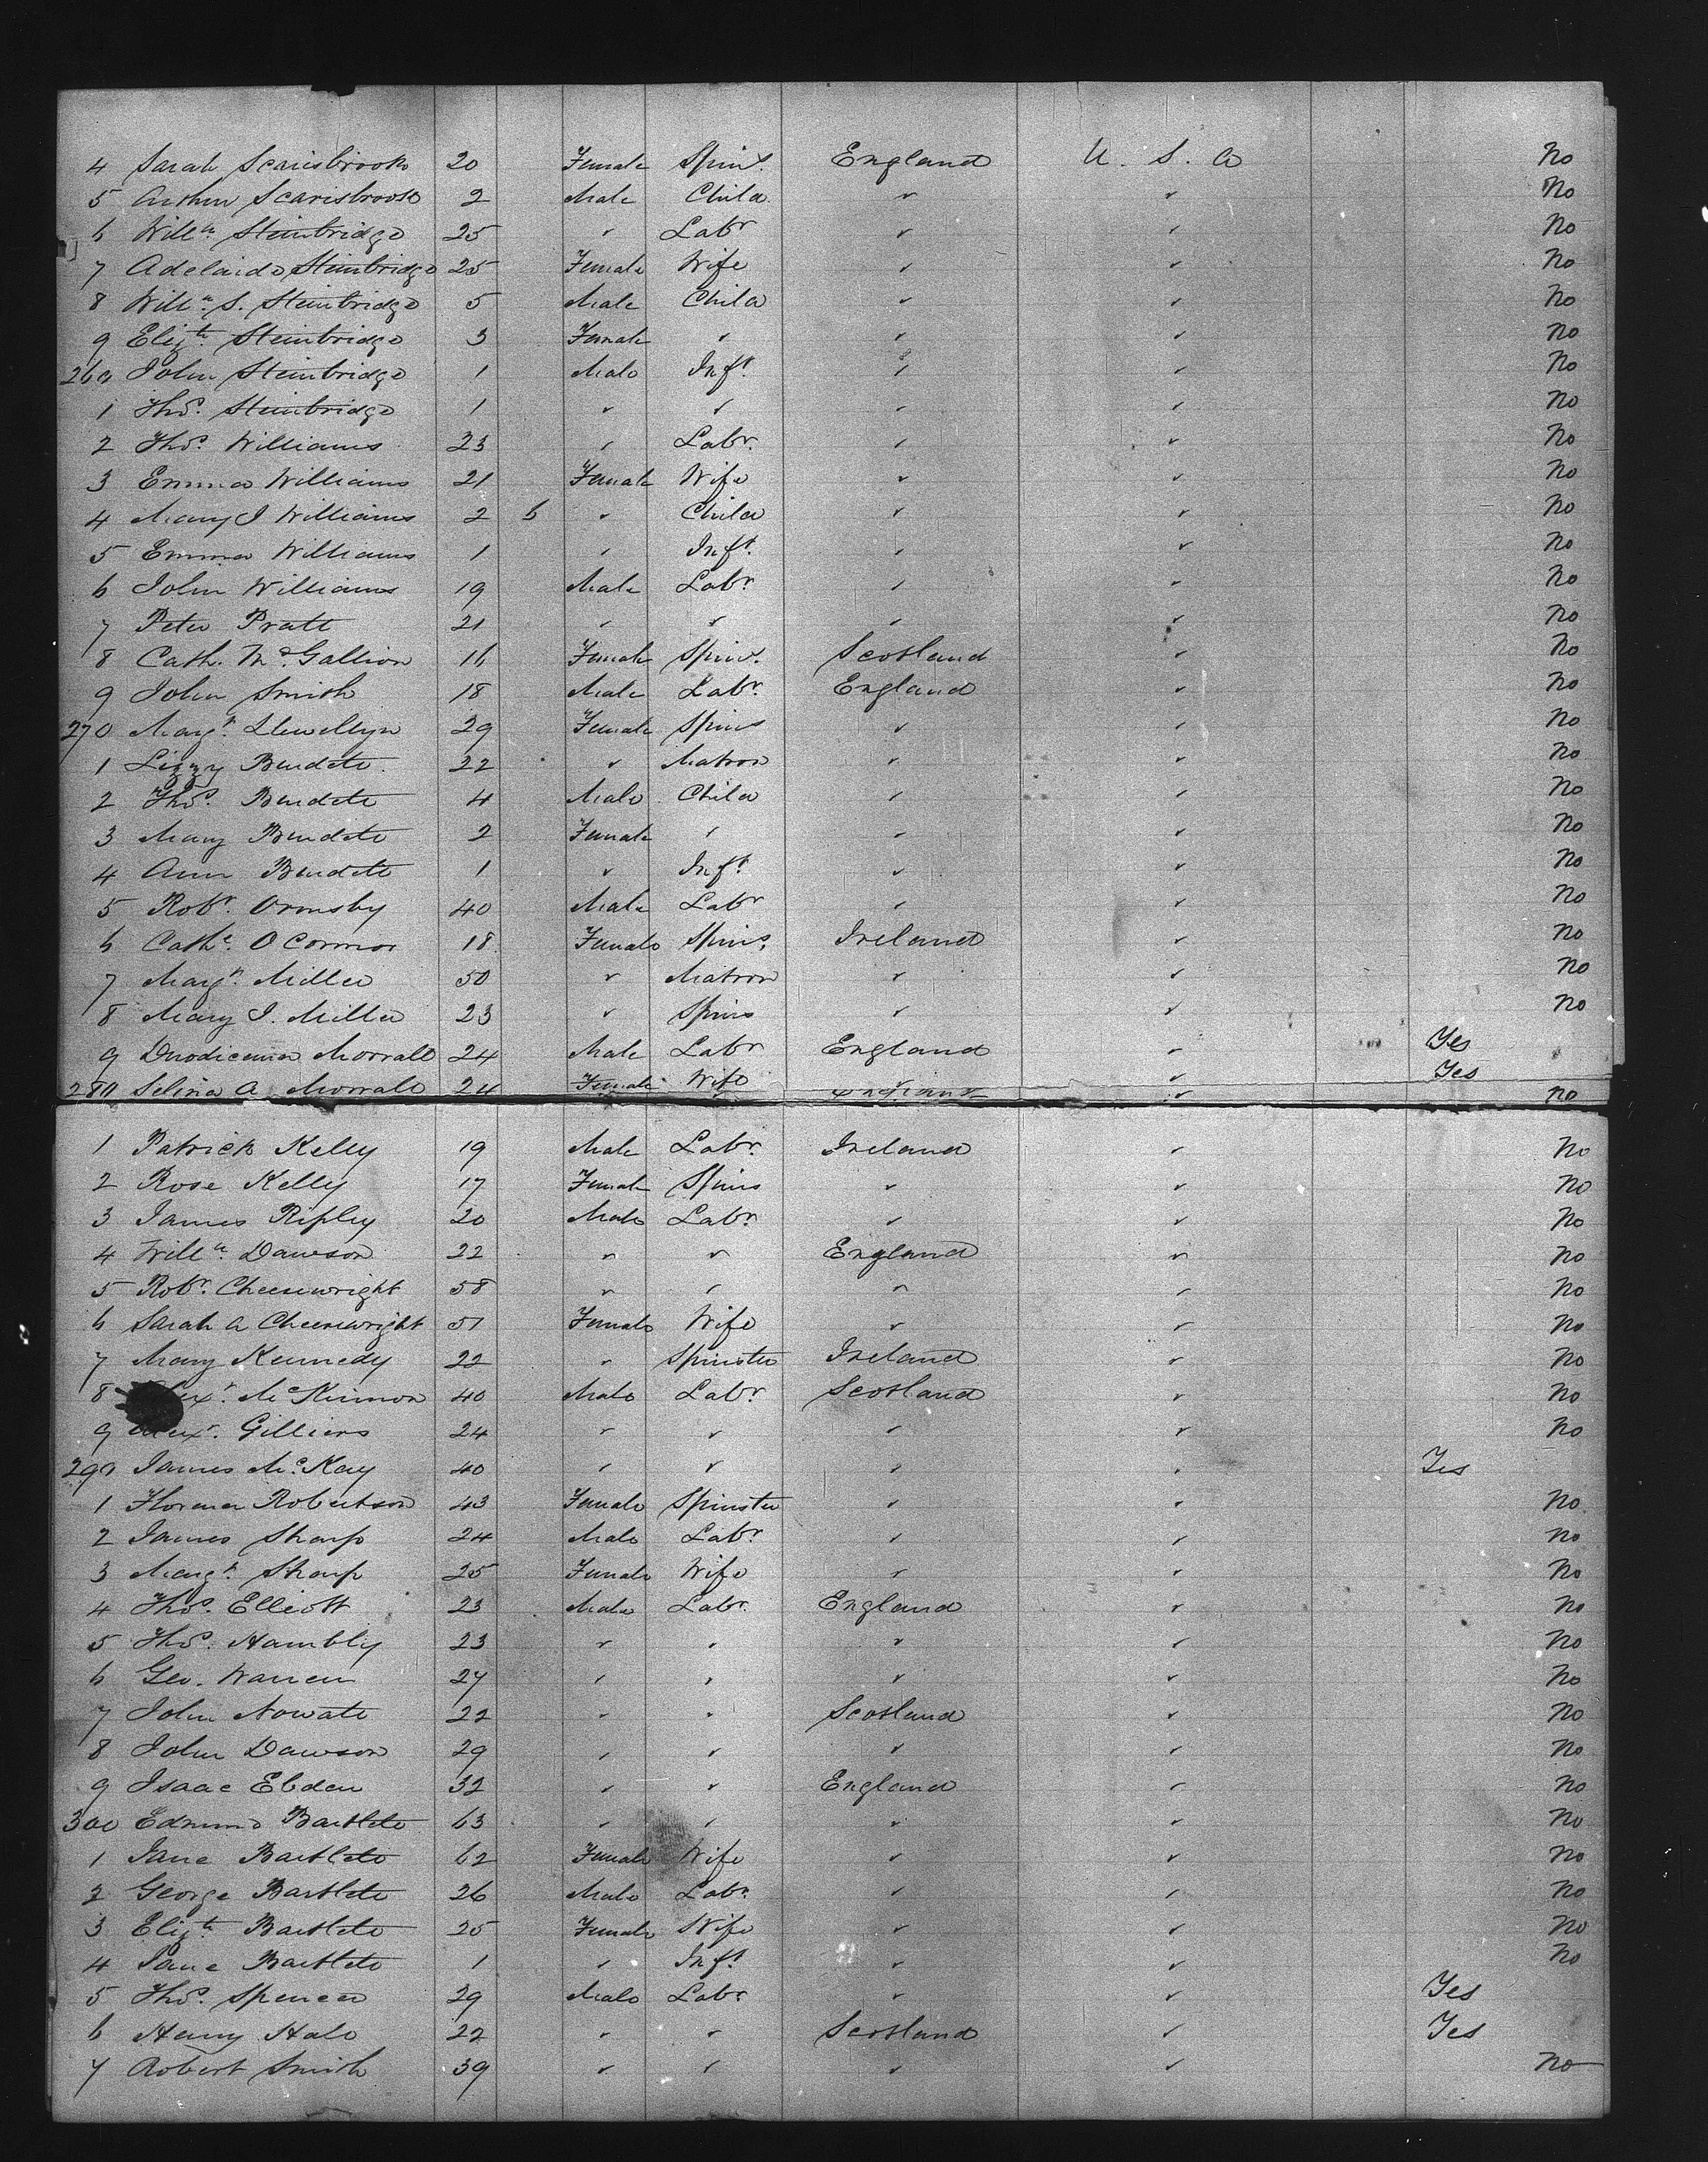 4 Sarah Scarisbrook 20 Female Spins. England U. S. A No
5 Arthur Scarisbrook 2 Male Child " " No
6 Willm Steinbridge 25 " Labr " " No
7 Adelaide Steinbridge 25 Female Wife " " No
8 Willm S. Steinbridge 5 Male Child " " No
9 Elizth Steinbridge 3 Female " " " No
260 John Steinbridge 1 Male Inft. " " No
1 Thos. Steinbridge 1 " " " " No
2 Thos. Williams 23 " Labr. " " No
3 Emma Williams 21 Female Wife " " No
4 Mary J Williams 2 6 " Child " " No
5 Emma Williams 1 " Inft. " " No
6 John Williams 19 Male Labr. " " No
7 Peter Pratt 21 " " " " No
8 Cath. McGallion 16 Female Spins. Scotland " No
9 John Smith 18 Male Labr. England " No
270 Margt. Llewellyn 29 Female Spins " " No
1 Lizzy Burdett. 22 " Matron " " No
2 Thos. Burdett 4 Male Child " " No
3 Mary Burdett 2 Female " " " No
4 Ann Burdett 1 " Inft. " " No
5 Robt. Ormsby 40 Male Labr " " No
6 Cathe. O Connor 18 Female Spins. Ireland " No
7 Margt. Miller 50 " Matron " " No
8 Mary J. Miller 23 " Spins " " No
9 Morrall 24 Male Labr England " Yes
280 Selina A Morrall 24 Female Wife " " Yes
England " No
1 Patrick Kelly 19 Male Labr. Ireland " No
2 Rose Kelly 17 Female Spins " " No
3 James Ripley 20 Male Labr. " " No
4 Willm Dawson 22 " " England " No
5 Robt. Cheesewright 58 " " " " No
6 Sarah A Cheesewright 51 Female Wife " " No
7 Mary Kennedy 22 " Spinster Ireland " No
8 Alexr. McKinnon 40 Male Labr. Scotland " No
9 Alexr. Gilliers 24 " " " " No
290 James McKay 40 " " " " Yes
1 Florence Robertson 43 Female Spinster " " No
2 James Sharp 24 Male Labr. " " No
3 Margt. Sharp 25 Female Wife " " No
4 Thos. Elliott 23 Male Labr. England " No
5 Thos. Hambly 23 " " " " No
6 Geo. Warren 27 " " " " No
7 John Nowatt 22 " " Scotland " No
8 John Dawson 29 " " " " No
9 Isaac Ebden 32 " " England " No
300 Edmund Bartlett 63 " " " " No
1 Jane Bartlett 62 Female Wife " " No
2 George Bartlett 26 Male Labr. " " No
3 Elizth Bartlett 25 Female Wife " " No
4 Jane Bartlett 1 " Inft. " " No
5 Thos. Spencer 29 Male Labr " " Yes
6 Henry Hale 22 " " Scotland " Yes
7 Robert Smith 39 " " " " No